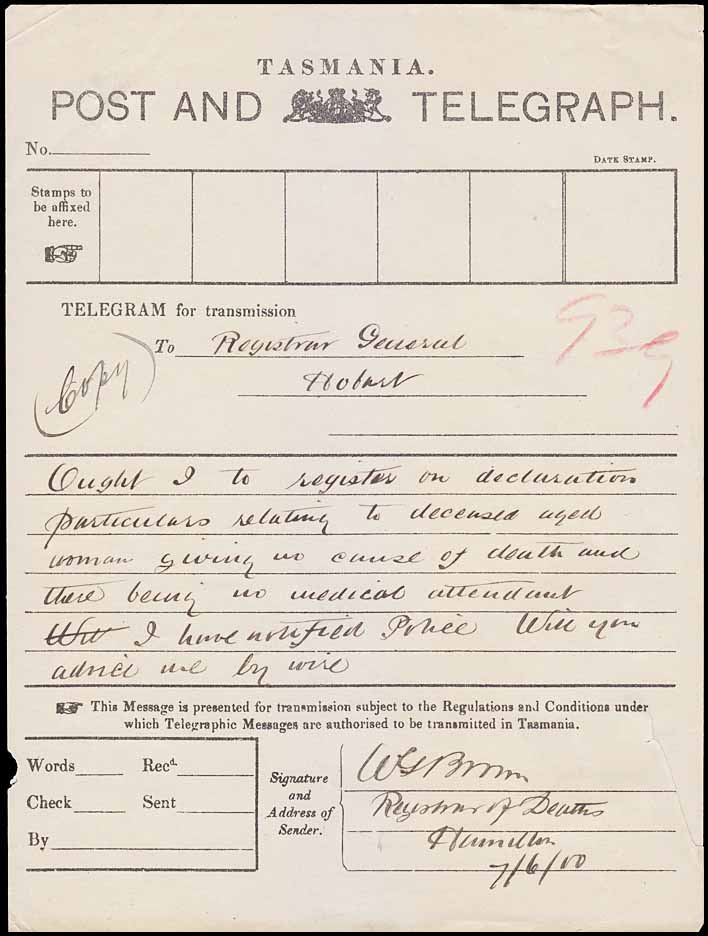 TASMANIA.
POST AND TELEGRAPH.
No.
DATE STAMP.
Stamps to
be affixed
here.
TELEGRAM for transmission
To Registrar General
Hobart
(Copy)
939
Ought I to register on declaration
particulars relating to deceased aged
woman giving no cause of death and
there being no medical attendant
Will I have notified Police Will you
advice me by wire
This Message is presented for transmission subject to the Regulations and Conditions under
which Telegraphic Messages are authorised to be transmitted in Tasmania.
Words Recd.
Check Sent
By
Signature
and
Address of
Sender.
WG Brown
Registrar of Deaths
Hamilton
7/6/00